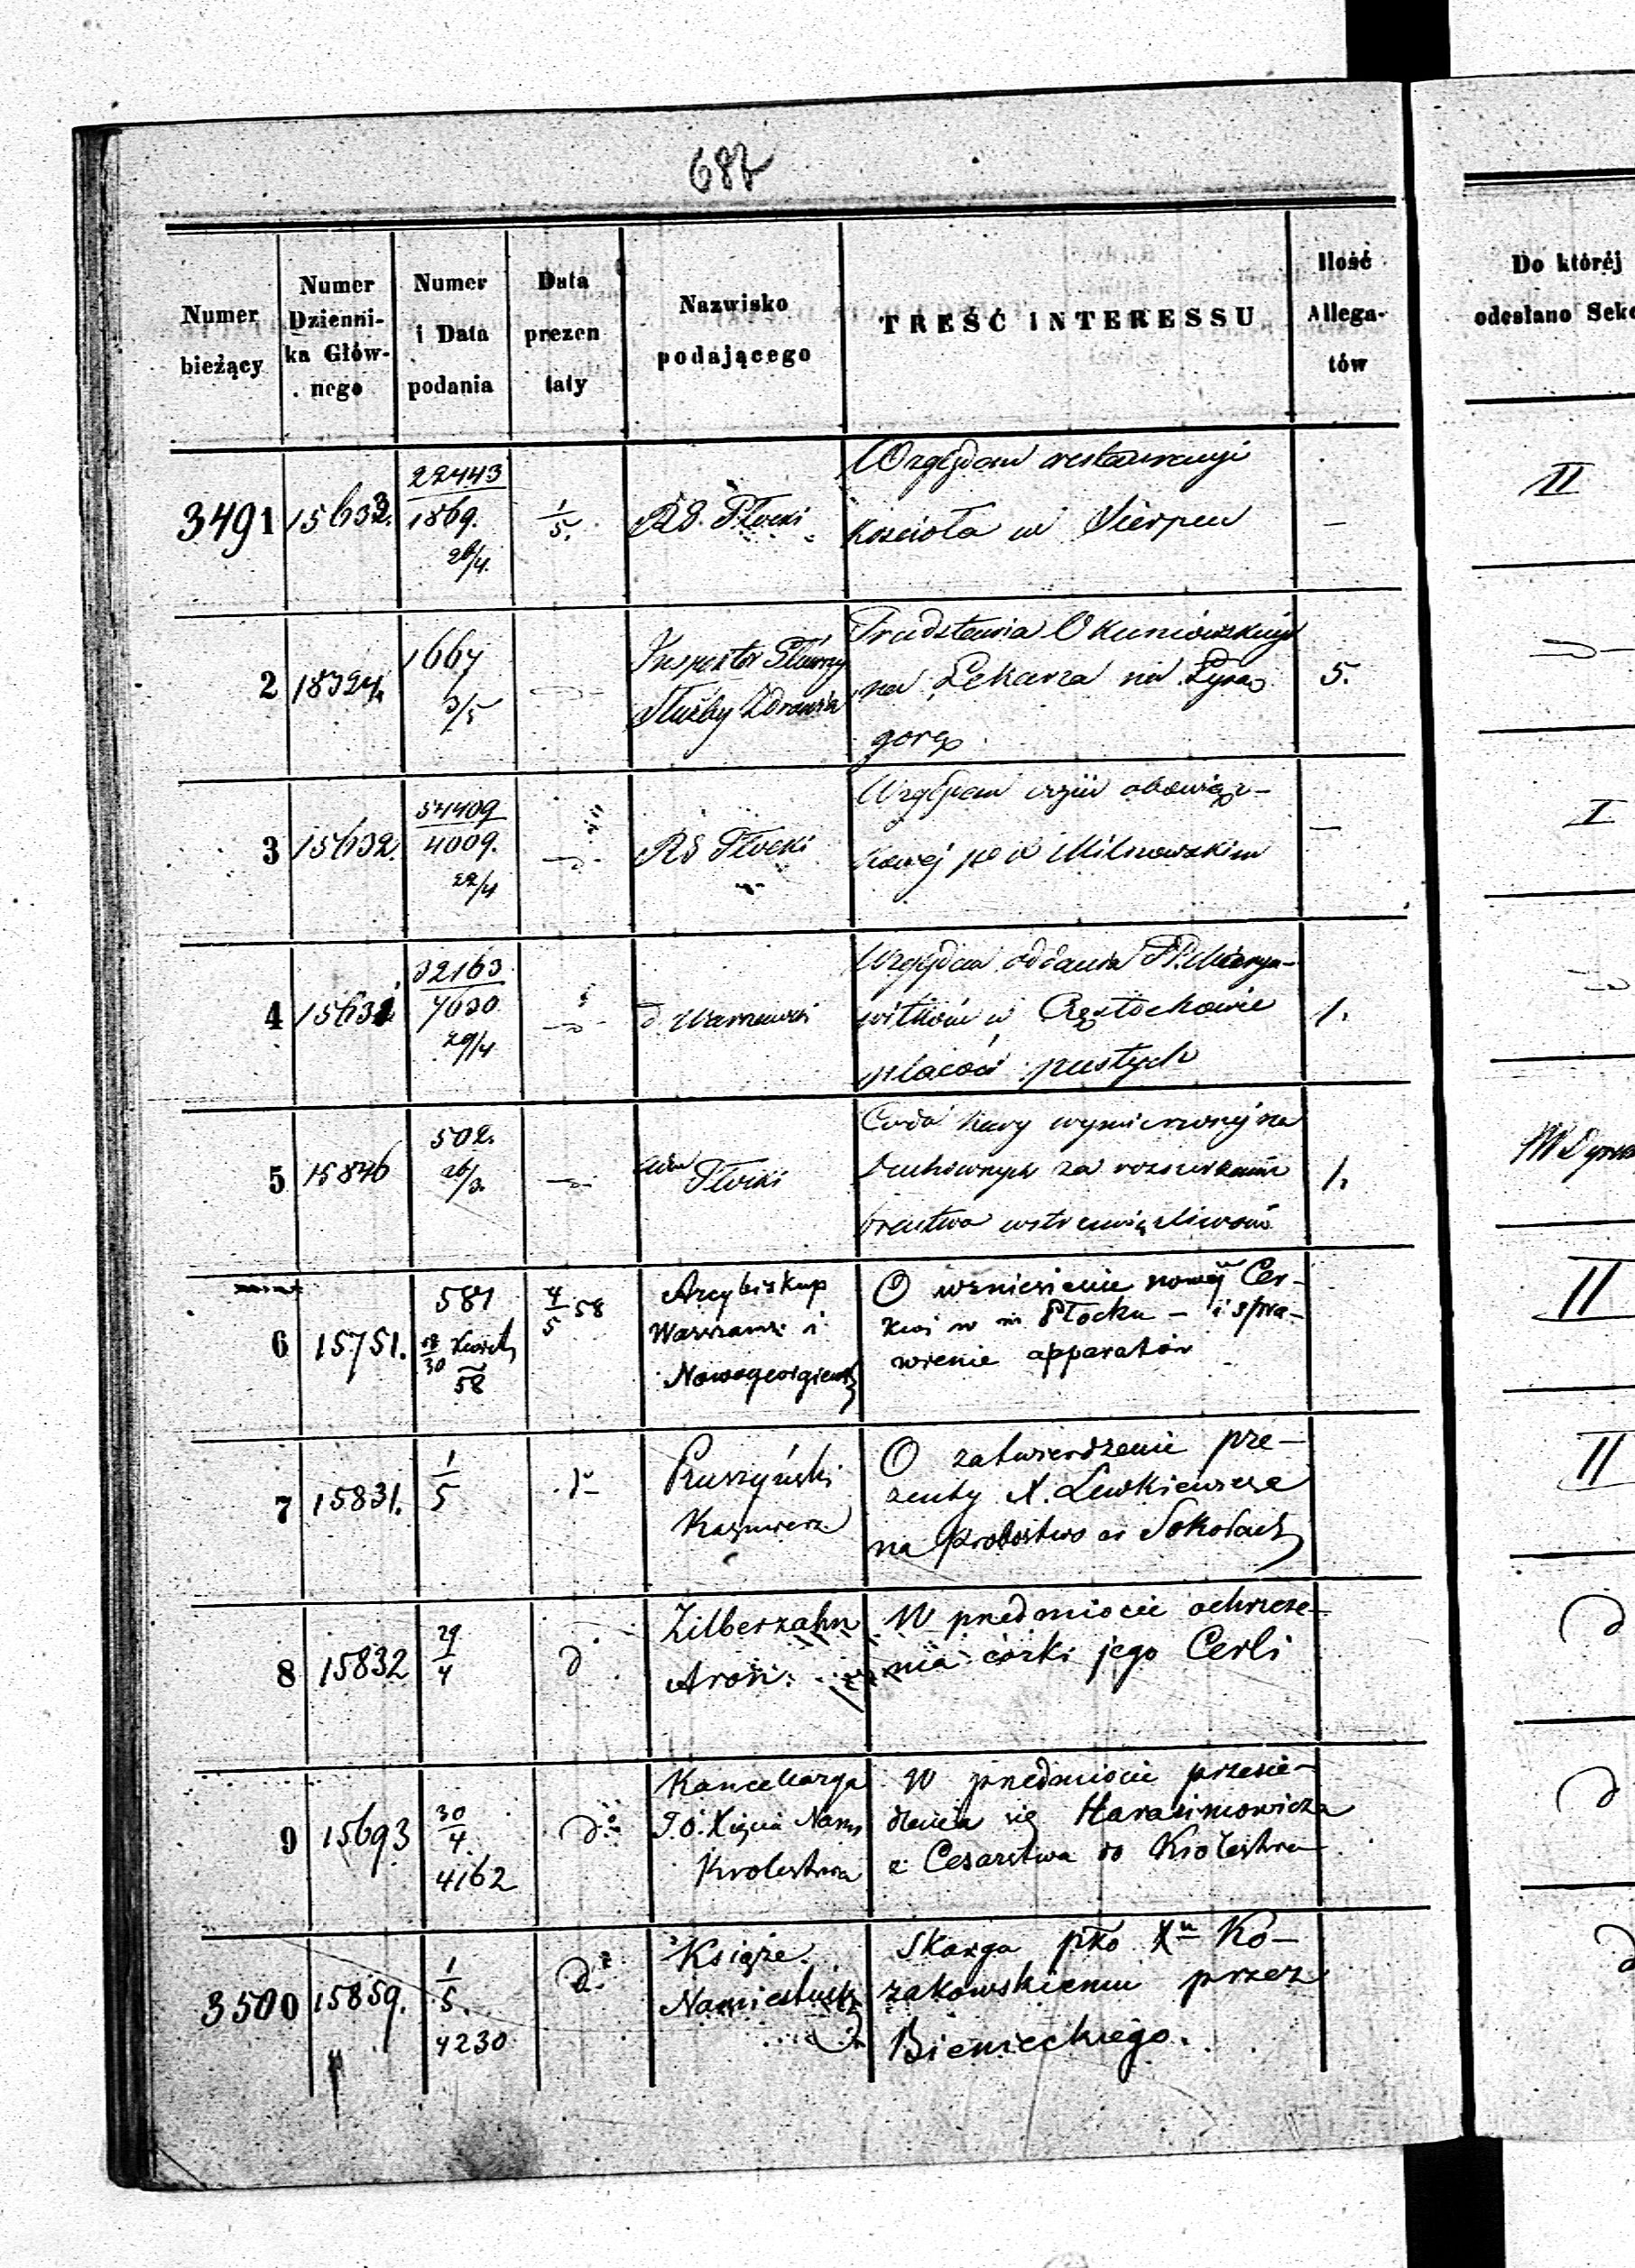 687
Numer bieżący
Numer Dzienni-ka Głów-nego
Numer i Data podania
Data prezen taty
Nazwisko podającego
TREŚĆ INTERESSU
Ilość Allega-tów
Do której
odesłano Sekc
3491
15633.
22443
1869.
28/4.
1/5.
RG. Płocki
Względem restauracyi
Kościoła w Sierpcu
—
II
2
18324
1667
3/5
Inspektor Główny
Służby Zdrowia
na Lekarza na Łysą
górę
5.
3
15632.
54409
4009.
22/4
RG Płocki
Względem
—
I
4
15631
32163
7630
29/4
d. Warszawski
Względem oddania PP. Marya-
witkom w Częstochowie
placów pustych
1.
5
15846
502.
26/3.
Płocki
kary wymierzonej na
Duchownych za rozszerzanie
bractwa wstrzemięźliwości
1.
6
15751.
581
18/30 Kwiet
58
4/5 58
Arcybiskup
Warszaws: i
Nowogeorgiewsk
O wzniesienie nowej Cer-
kwi w m Płocku — i spra-
wienie apparatów
II
7
15831.
1/5
Pruszyński
Kazimierz
O zatwierdzenie pre-
zenty X. Lewkiewicza
na Probostwo w Sokołach
II
8
15832
29/4
d
Zilberzahn
Aron
W przedmiocie ochrzcze-
nia córki jego Cerli
d
9
15693
30/4.
4162
d
Kancellarya
J.O. Xięcia Nams
Królestwa
W przedmiocie przesie-
dlenia się Harasimowicza
z Cesarstwa do Królestwa
d
3500
15859.
1/5.
4230
d
Książe
Namiestnik
Skarga pko Xu Ko-
zakowskiemu przez
Bienieckiego.
d